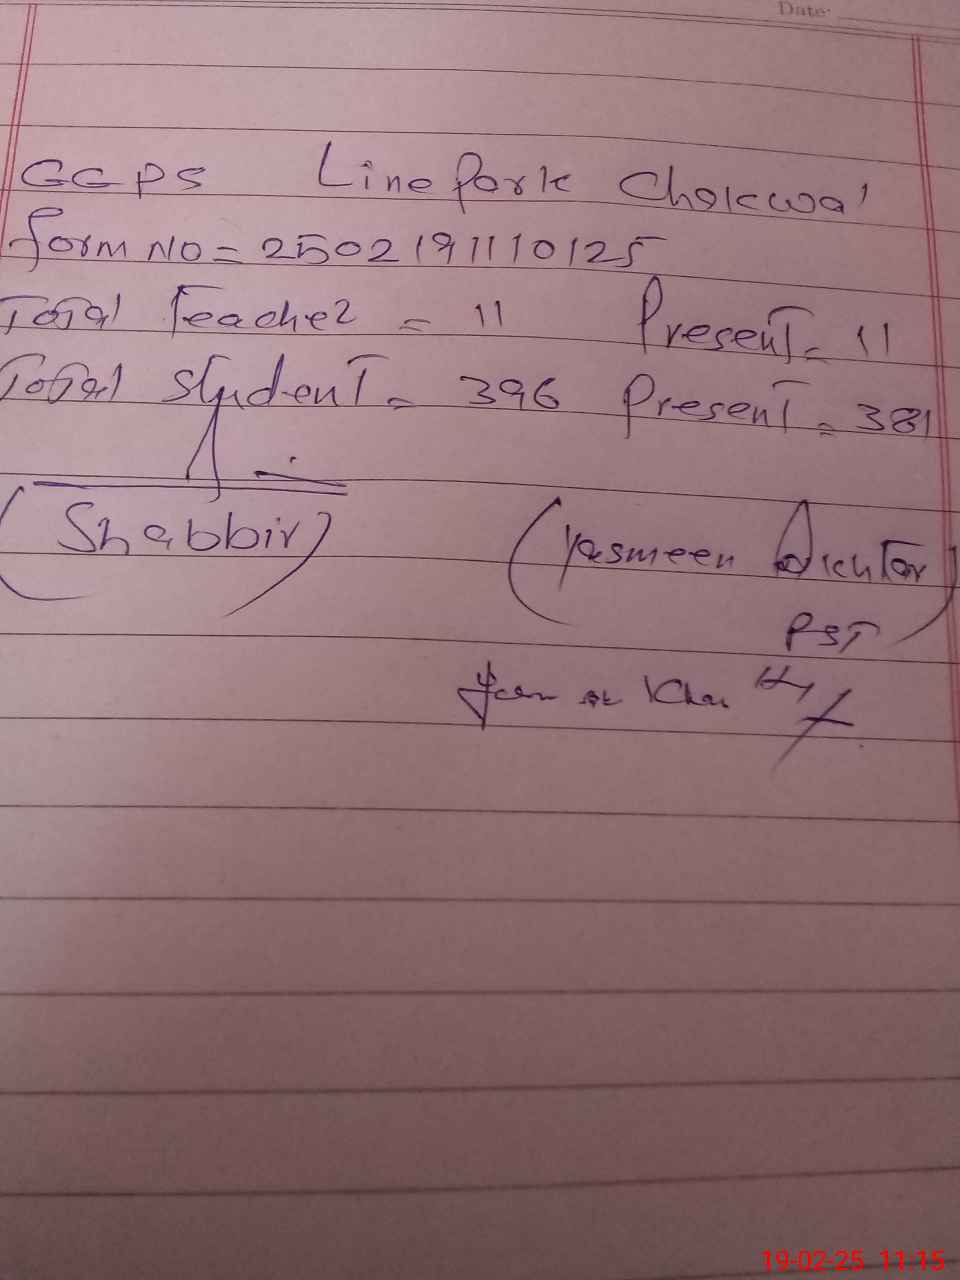 Date:
GGPS Line Park Chakwal
form NO = 2502191110125
Total Teacher = 11 Present = 11
Total student = 396 Present = 381
(Shabbir) (Yasmeen Akhtar)
PST
19-02-25 11:15